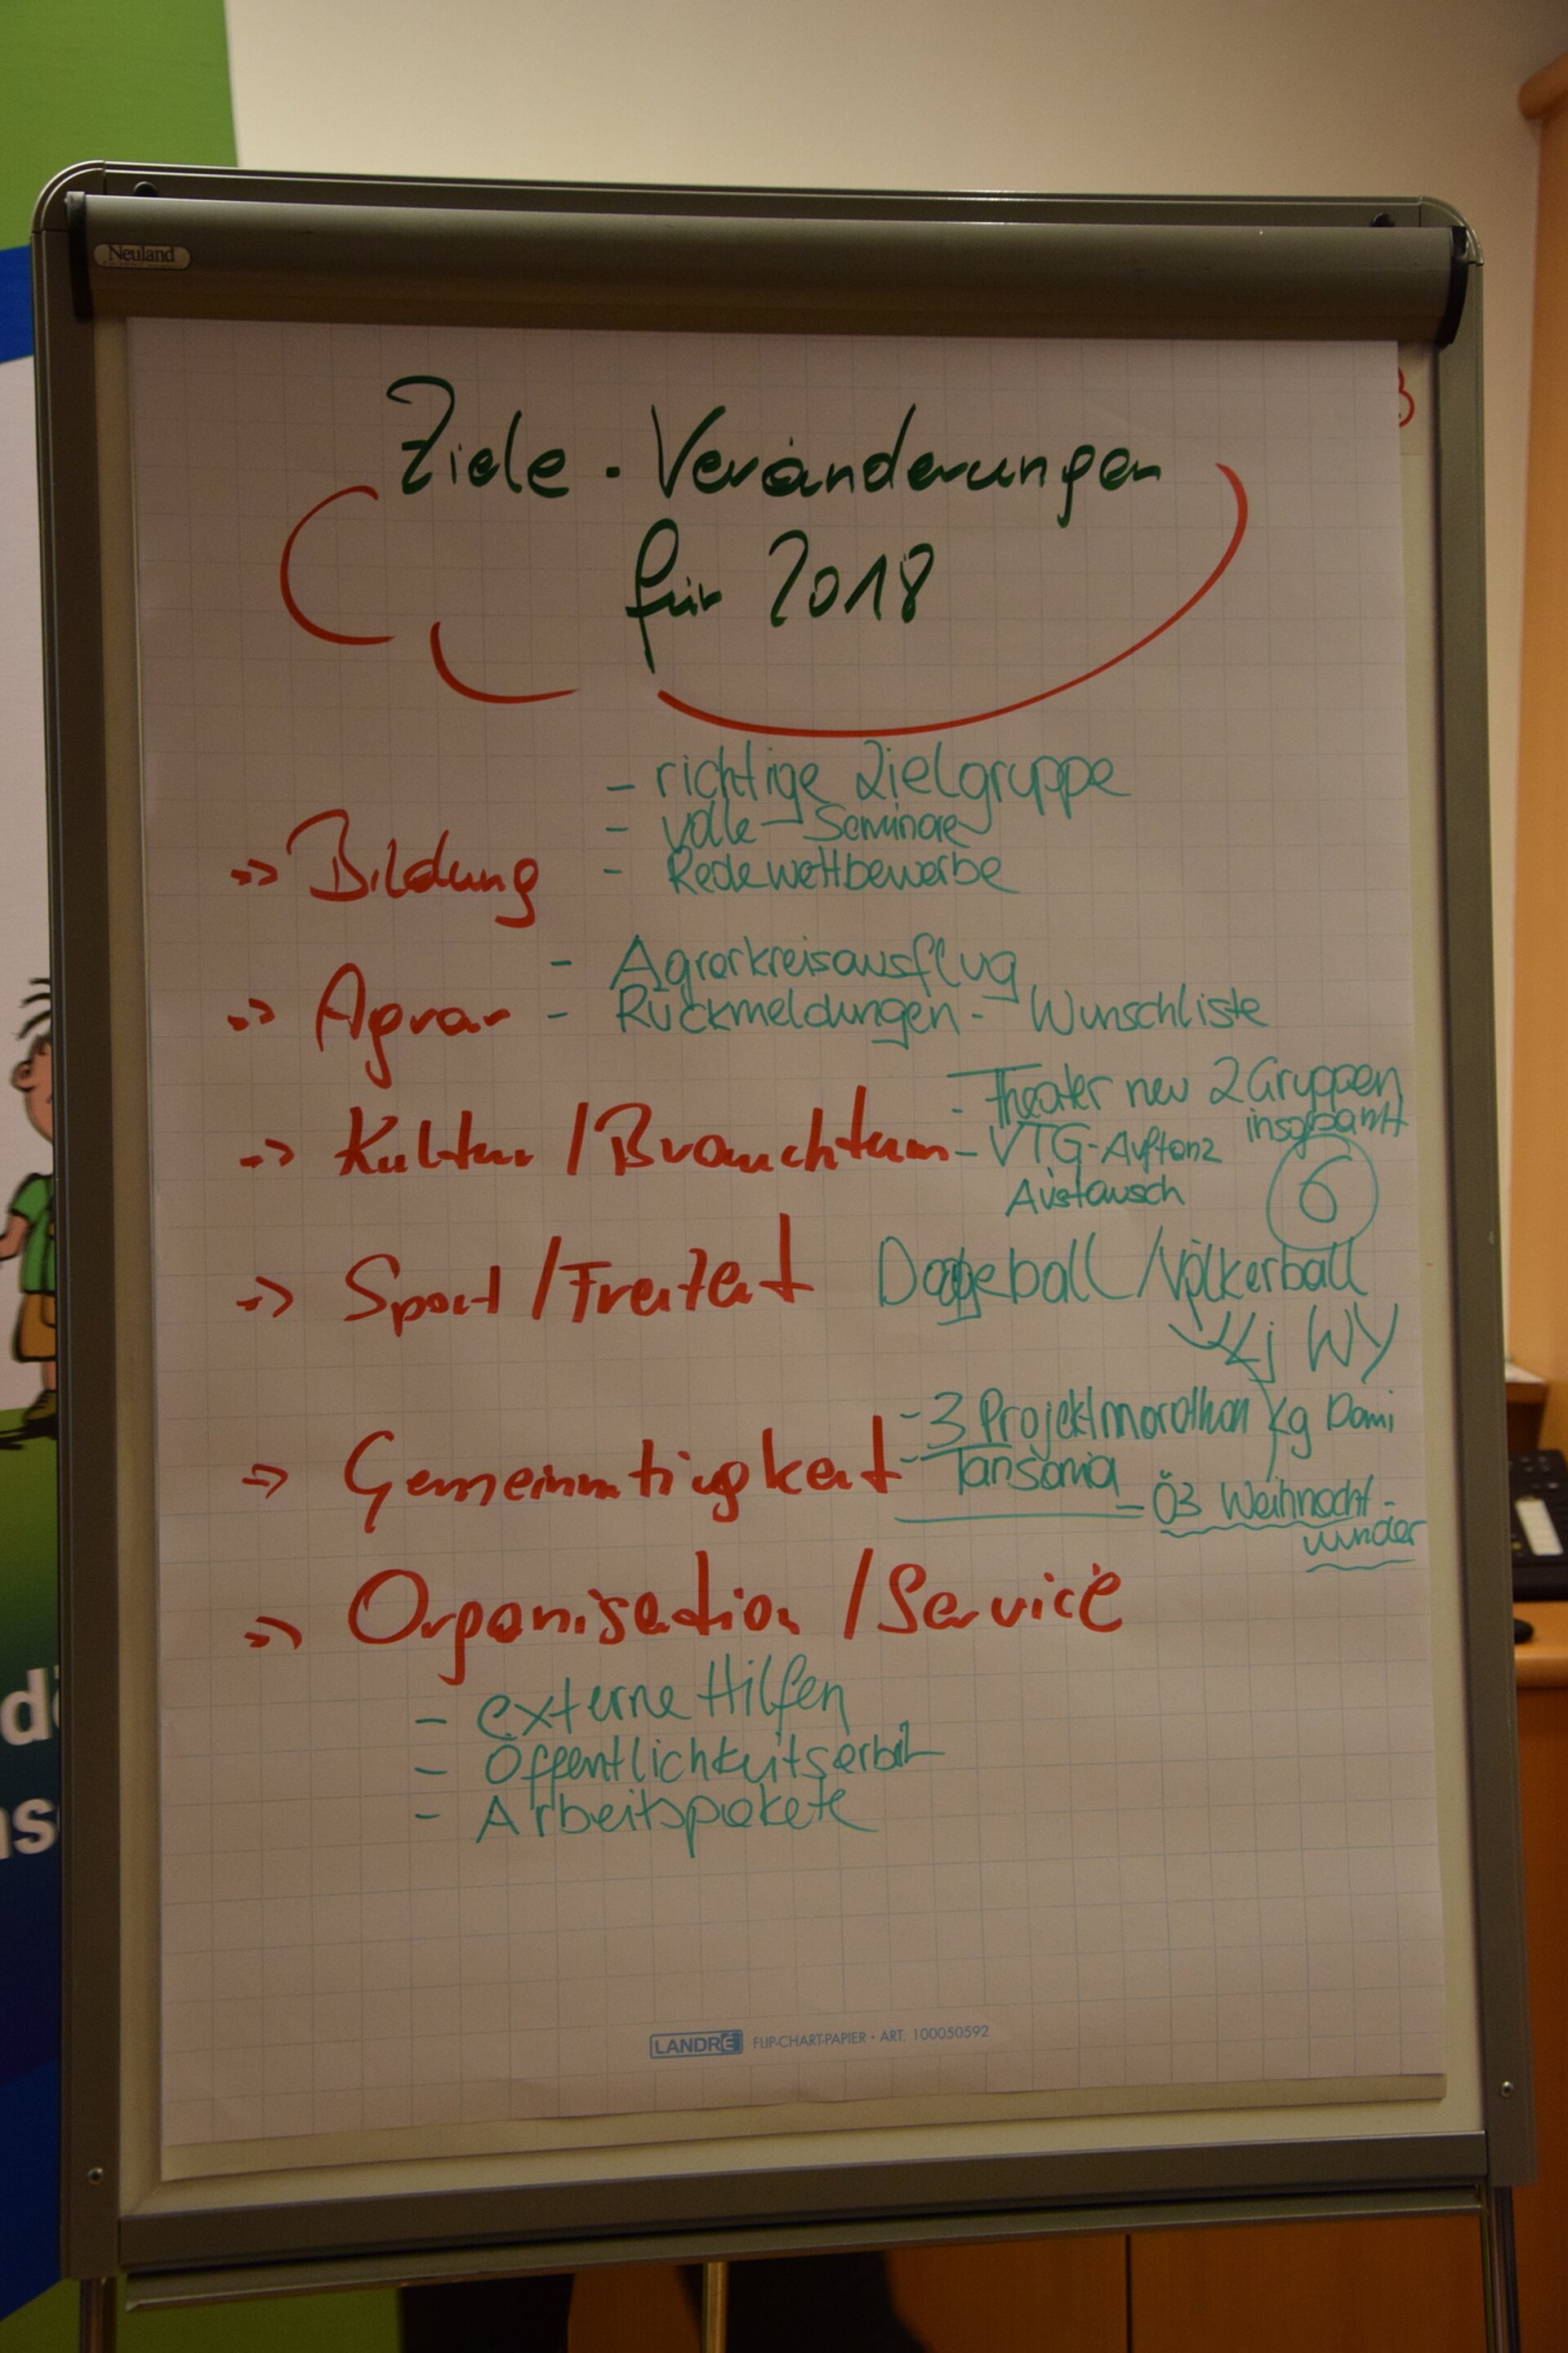 Neuland
Ziele · Veränderungen
für 2018
- richtige Zielgruppe
- volle Seminare
->> Bildung - Redewettbewerbe
- Agrarkreisausflug
->> Agrar - Rückmeldungen - Wunschliste
- Theater neu 2 Gruppen
insgesamt
->> Kultur / Brauchtum - VTG-Auftanz
Austausch 6
->> Sport / Freizeit Dodgeball / Völkerball
Lj WY
- 3 Projektmarathon
->> Gemeinnützigkeit - Tansania
- Ö3 Weihnacht-
wunder
->> Organisation / Service
- externe Hilfen
- Öffentlichkeitsarbeit
- Arbeitspakete
LANDRÉ FLIP-CHART-PAPIER • ART. 100050592